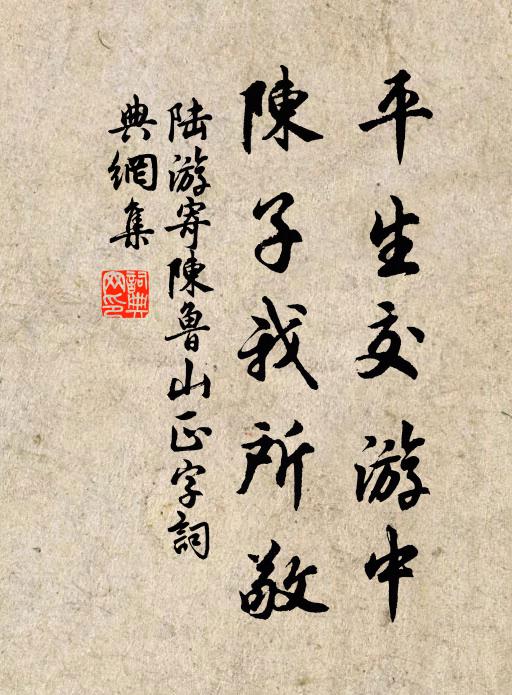 平生交游中
陳子我所敬
陸游寄陳魯山正字詞
典網集
詞典网印